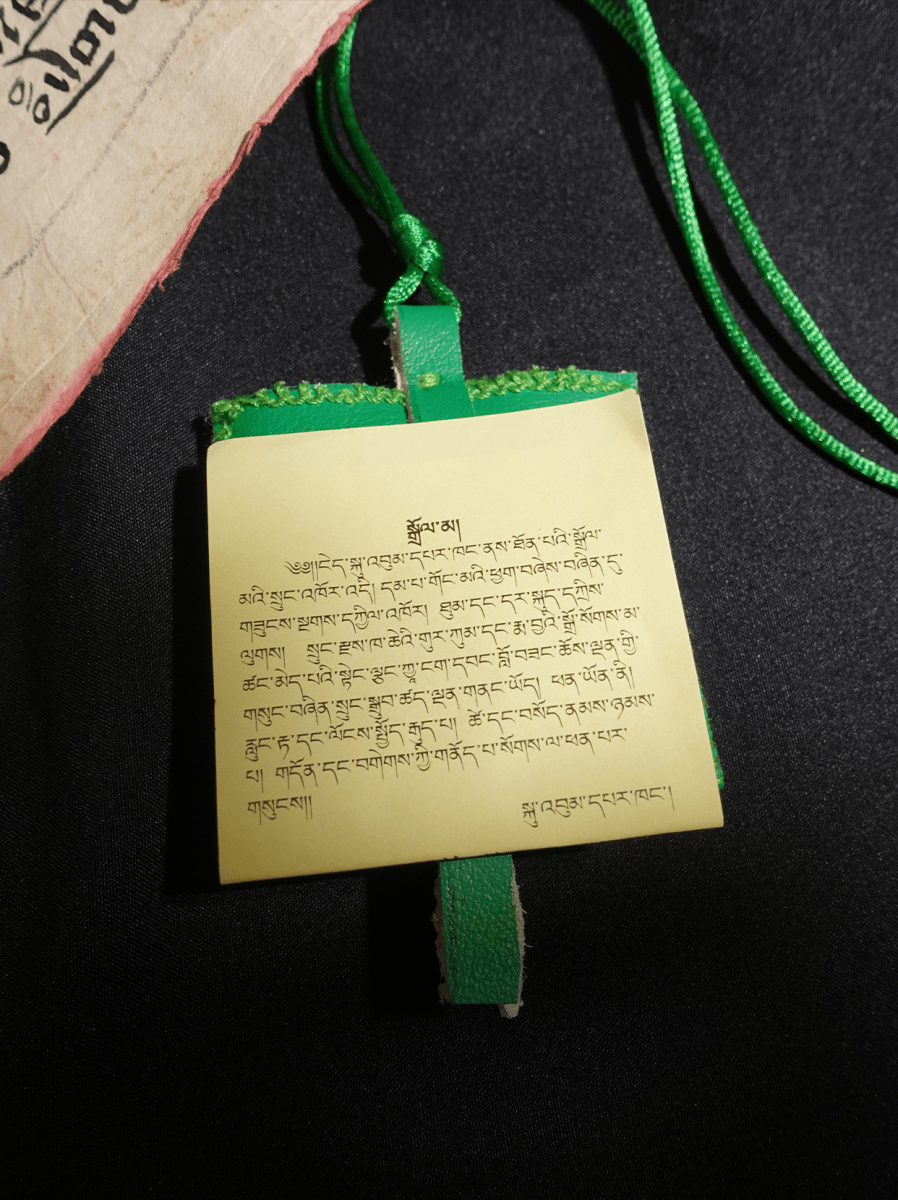 སྒྲོལ་མ།
༄༅།།ངེད་སྐུ་འབུམ་དཔར་ཁང་ནས་ཐོན་པའི་སྒྲོལ་
མའི་སྲུང་འཁོར་འདི། དམ་པ་གོང་མའི་ཕྱག་བཞེས་བཞིན་དུ་
གཟུངས་སྔགས་དཀྱིལ་འཁོར། ཐུམ་དང་དར་སྐུད་དཀྲིས་
ལུགས། སྲུང་རྫས་ཁ་ཆེའི་གུར་ཀུམ་དང་རྨ་བྱའི་སྒྲོ་སོགས་མ་
ཚང་མེད་པའི་སྟེང་ལྕུང་ཀྱཱ་ངག་དབང་བློ་བཟང་ཆོས་ལྡན་གྱི་
གསུང་བཞིན་སྲུང་སྒྲུབ་ཚད་ལྡན་གནང་ཡོད། ཕན་ཡོན་ནི།
རླུང་རྟ་དང་ལོངས་སྤྱོད་རྒུད་པ། ཚེ་དང་བསོད་ནམས་ཉམས་
པ། གདོན་དང་བགེགས་ཀྱི་གནོད་པ་སོགས་ལ་ཕན་པར་
གསུངས།།
སྐུ་འབུམ་དཔར་ཁང་།